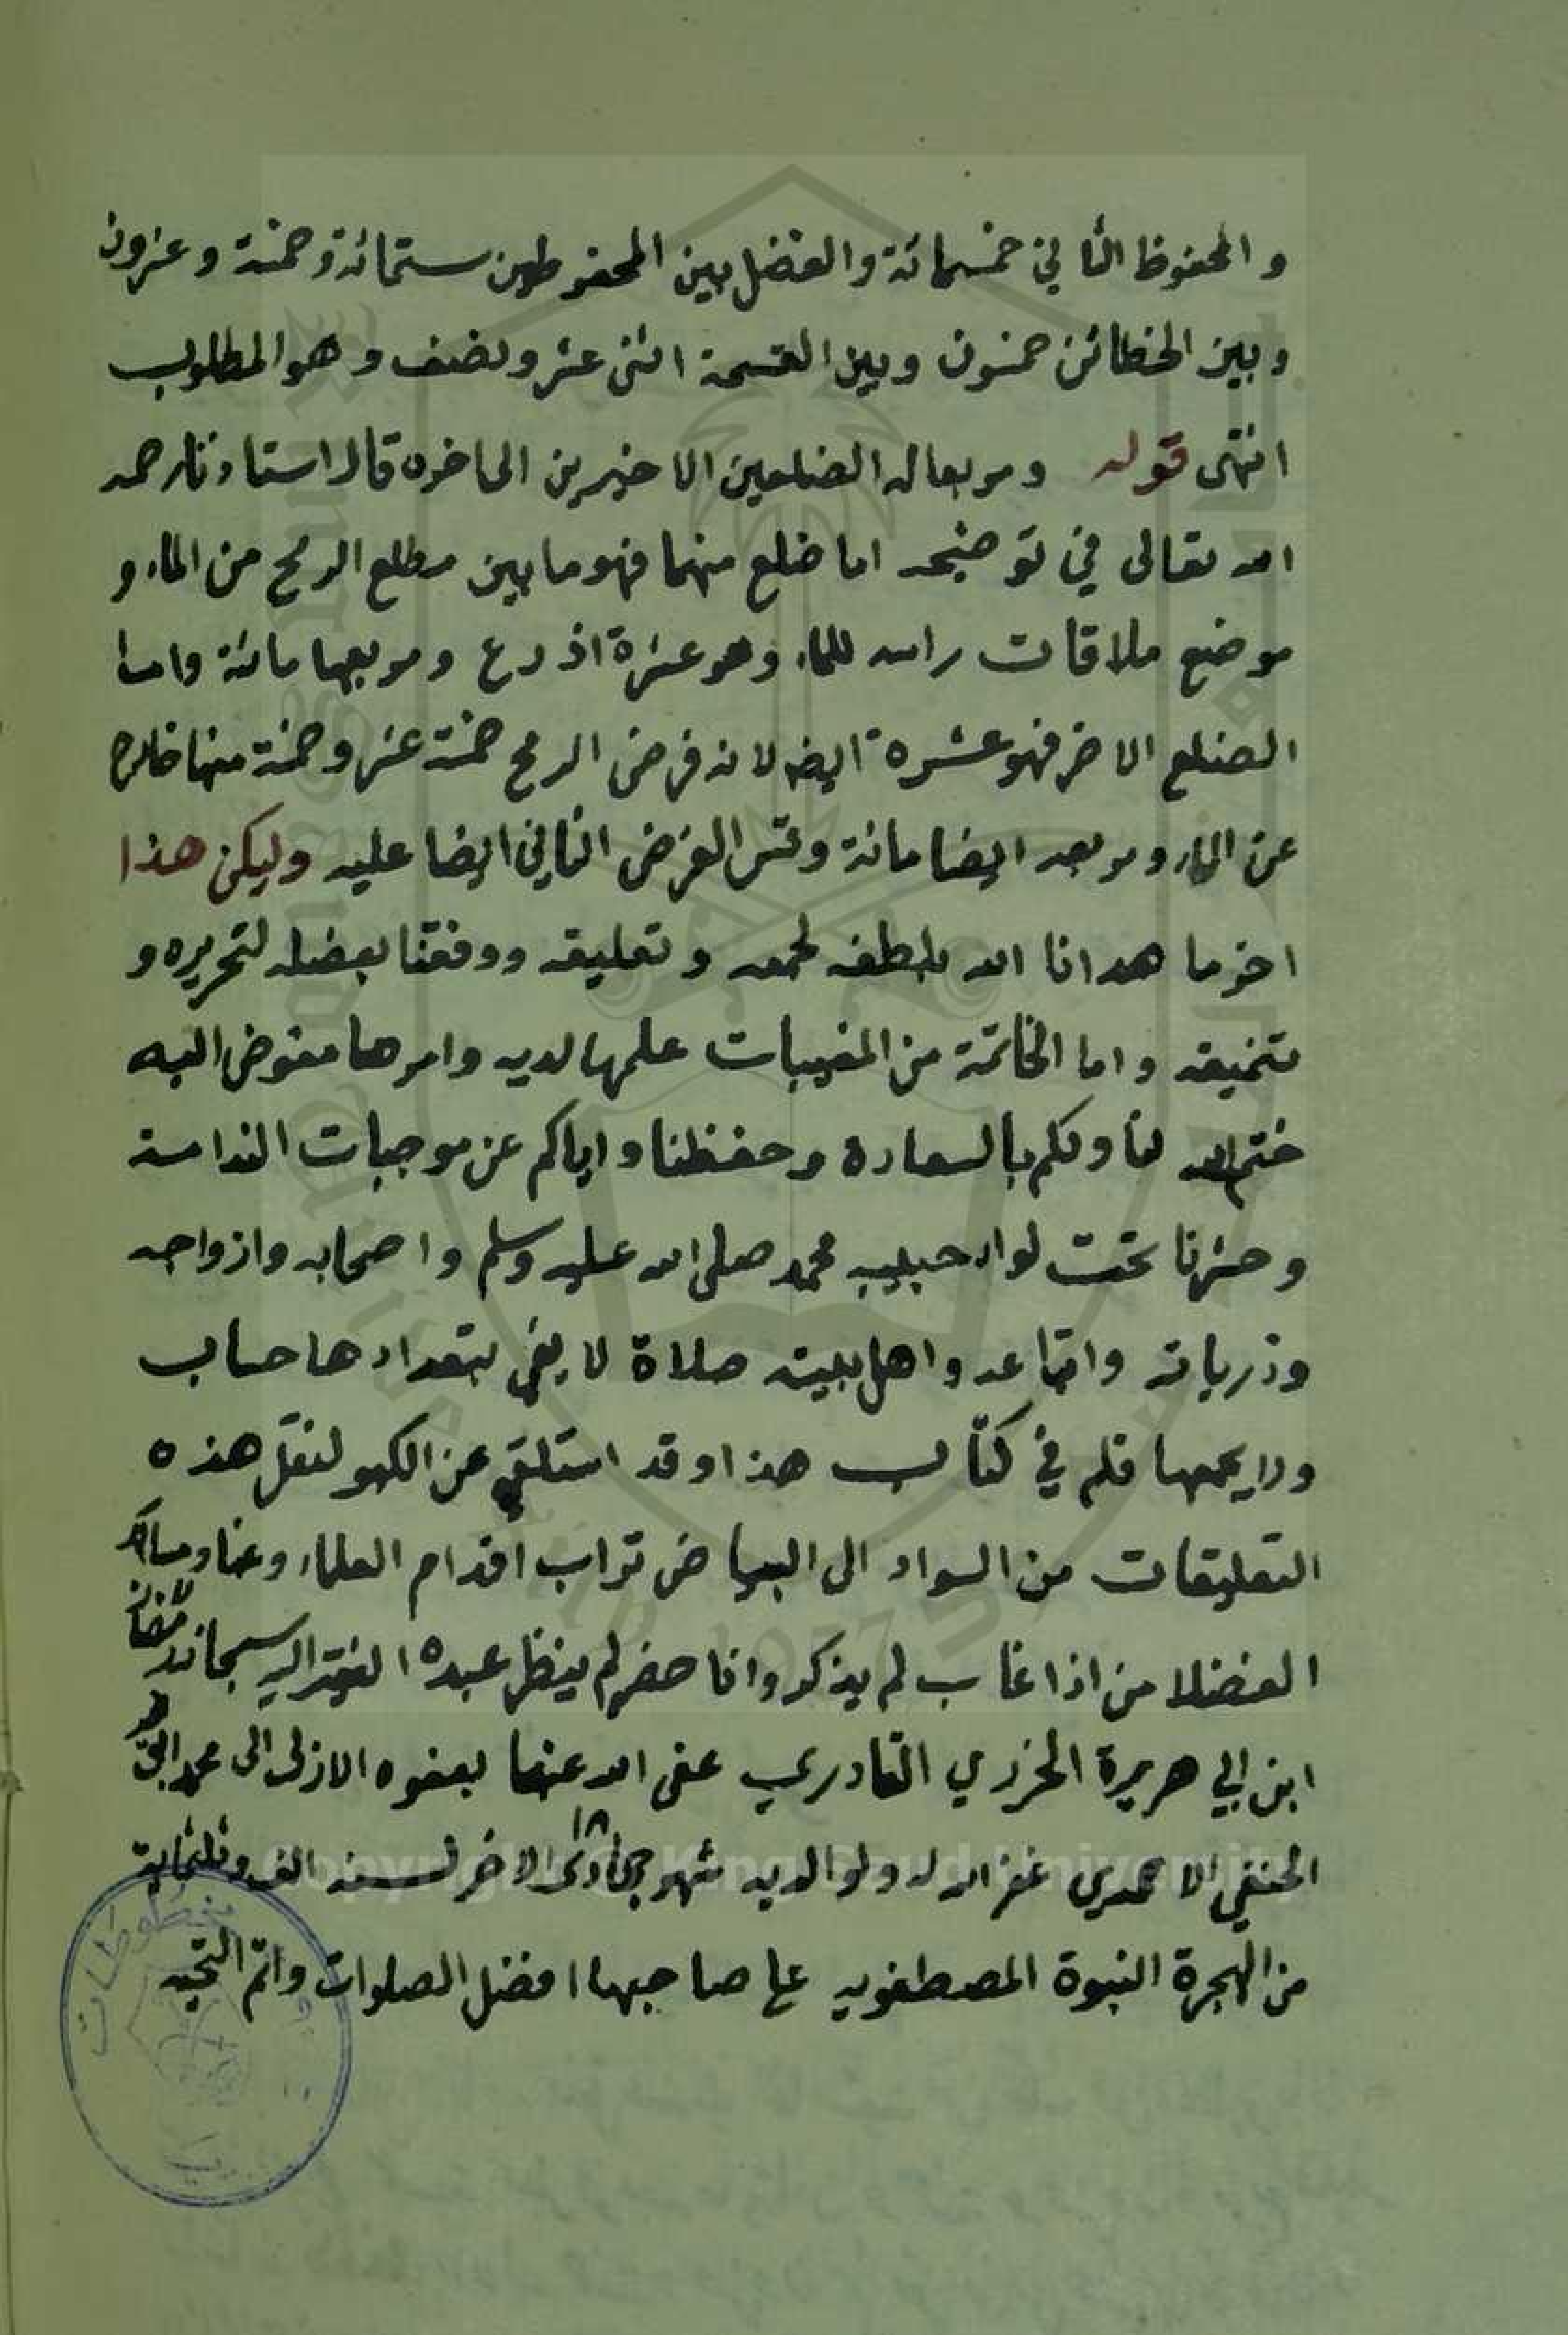 والمحفوظ الثاني خمسمائة والفضل بين المحفوظين ستمائة وخمسة وعشرون
وبين الخطائن خمسون وبين القسمة اثنى عشر ونصف وهو المطلوب
انتهى قوله ومربعاله الضلعين الاخيرين الى اخره قال استاذنا رحمه
الله تعالى في توضيحه اما ضلع منهما فهو ما بين مطلع الرمح من الماء و
موضع ملاقات راسه للماء وهو عشرة اذرع ومربعها مائة واما
الضلع الاخر فهو عشرة ايضا لانه فرض الرمح خمسة عشر وخمسة منها خارج
عن الماء ومربعه ايضا مائة وقس الفرض الثاني ايضا عليه وليكن هذا
اخر ما هدانا الله بلطفه لجمعه وتعليقه ووفقنا بفضله لتحريره و
تنميقه واما الخاتمة من المغيبات علمها لديه وامرها مفوض اليه
ختم الله لنا ولكم بالسعادة وحفظنا واياكم عن موجبات الندامة
وحشرنا تحت لواء حبيبه محمد صلى الله عليه وسلم واصحابه وازواجه
وذرياته واتباعه واهل بيته صلاة لا يفي بتعدادها حساب
ولا يجمعها قلم في كتاب هذا وقد لنقل هذه
التعليقات من السواد الى البياض تراب اقدام العلماء
الفضلا من اذا غاب لم يذكر واذا حضر لم ينظر عبده الفقير اليه سبحانه
ابن ابي هريرة الخزرجي القادري عفى الله عنهما بعفوه الازلى الى محمد
الحنفي الاحمدي غفر الله له ولوالديه شهر ١٨ جمادى الاخر لسنه الف وثلثماية
من الهجرة النبوة المصطفويه على صاحبها افضل الصلوات واتم التحيه
Copyright © King Saud University
King Saud University 1957
مخطوطات